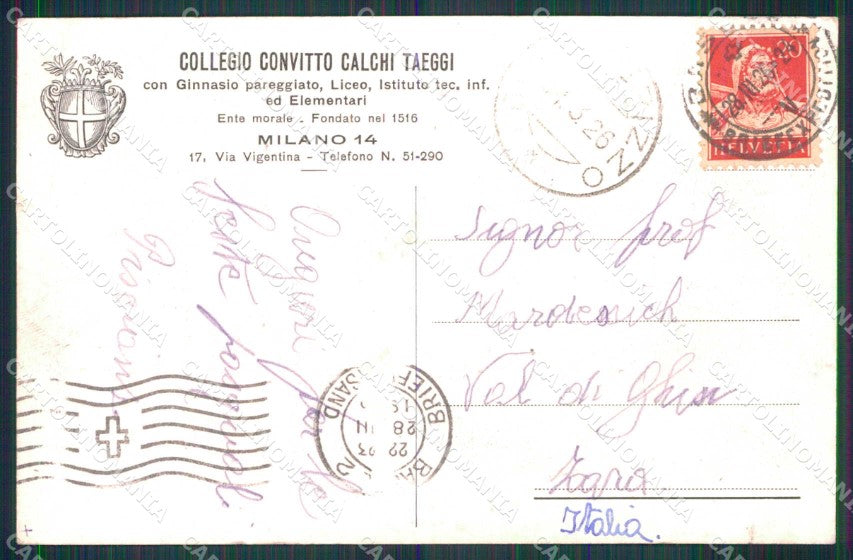 COLLEGIO CONVITTO CALCHI TAEGGI
con Ginnasio pareggiato, Liceo, Istituto tec. inf.
ed Elementari
Ente morale - Fondato nel 1516
MILANO 14
17, Via Vigentina - Telefono N. 51-290
OZZ
3.26
20
HELVETIA
Auguri per le
feste pasquali
Signor prof
Mardesich
Val di Ghisi
Zara
Italia.
BRIEF
SAND
CARTOLINOMANIA